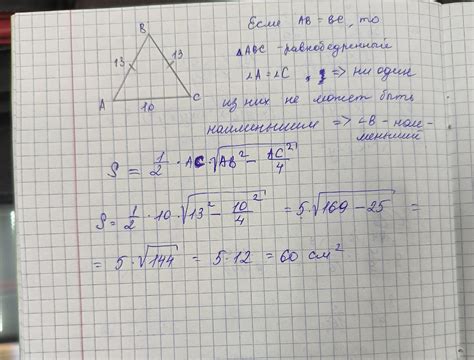 Если AB = BC, то
B
△ABC - равнобедренный
13
13
∠A = ∠C, => ни один
A
C
10
из них не может быть
наименьшим => ∠B - наи-
меньший
S = 1/2 · AC · √(AB² - AC²/4)
S = 1/2 · 10 · √(13² - 10²/4) = 5 · √(169 - 25) =
= 5 · √144 = 5 · 12 = 60 см²